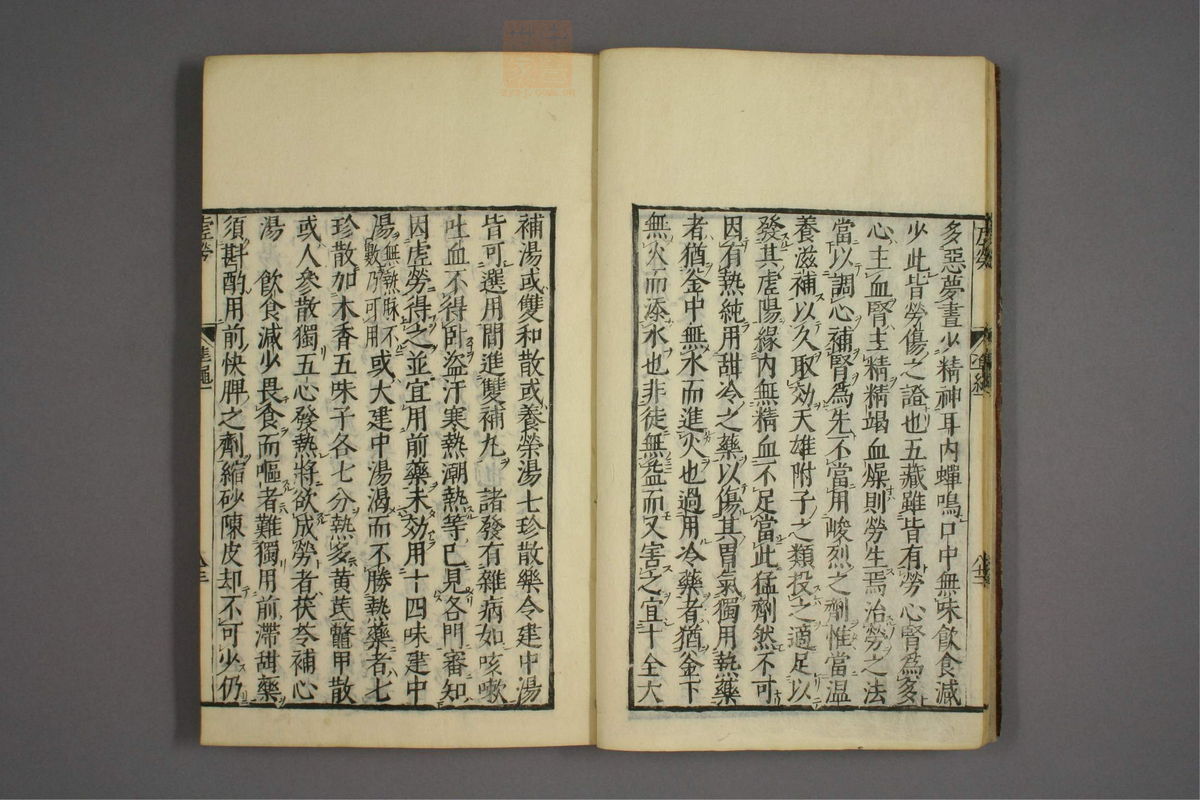 多惡夢晝少精神耳內蟬鳴口中無味飲食減
少此皆勞傷之證也五藏雖皆有勞心腎為多
心主血腎主精精竭血燥則勞生焉治勞之法
當以調心補腎為先不當用峻烈之劑惟當溫
養滋補以久取効天雄附子之類投之適足以
發其虛陽緣內無精血不足當此猛劑然不可
因有熱純用甜冷之藥以傷其胃氣獨用熱藥
者猶釜中無水而進火也過用冷藥者猶釜下
無火而添水也非徒無益而又害之宜十全大
補湯或雙和散或養榮湯七珍散藥令建中湯
皆可選用間進雙補丸 諸發有雜病如咳嗽
吐血不得臥盜汗寒熱潮熱等已見各門審知
因虛勞得之並宜用前藥未効用十四味建中
湯無熱脈不數乃可用或大建中湯渴而不勝熱藥者七
珍散加木香五味子各七分熱多黃芪鼈甲散
或人參散獨五心發熱將欲成勞者茯苓補心
湯 飲食減少畏食而嘔者難獨用前滯甜藥
須斟酌用前快脾之劑縮砂陳皮却不可少仍
虛勞
準繩